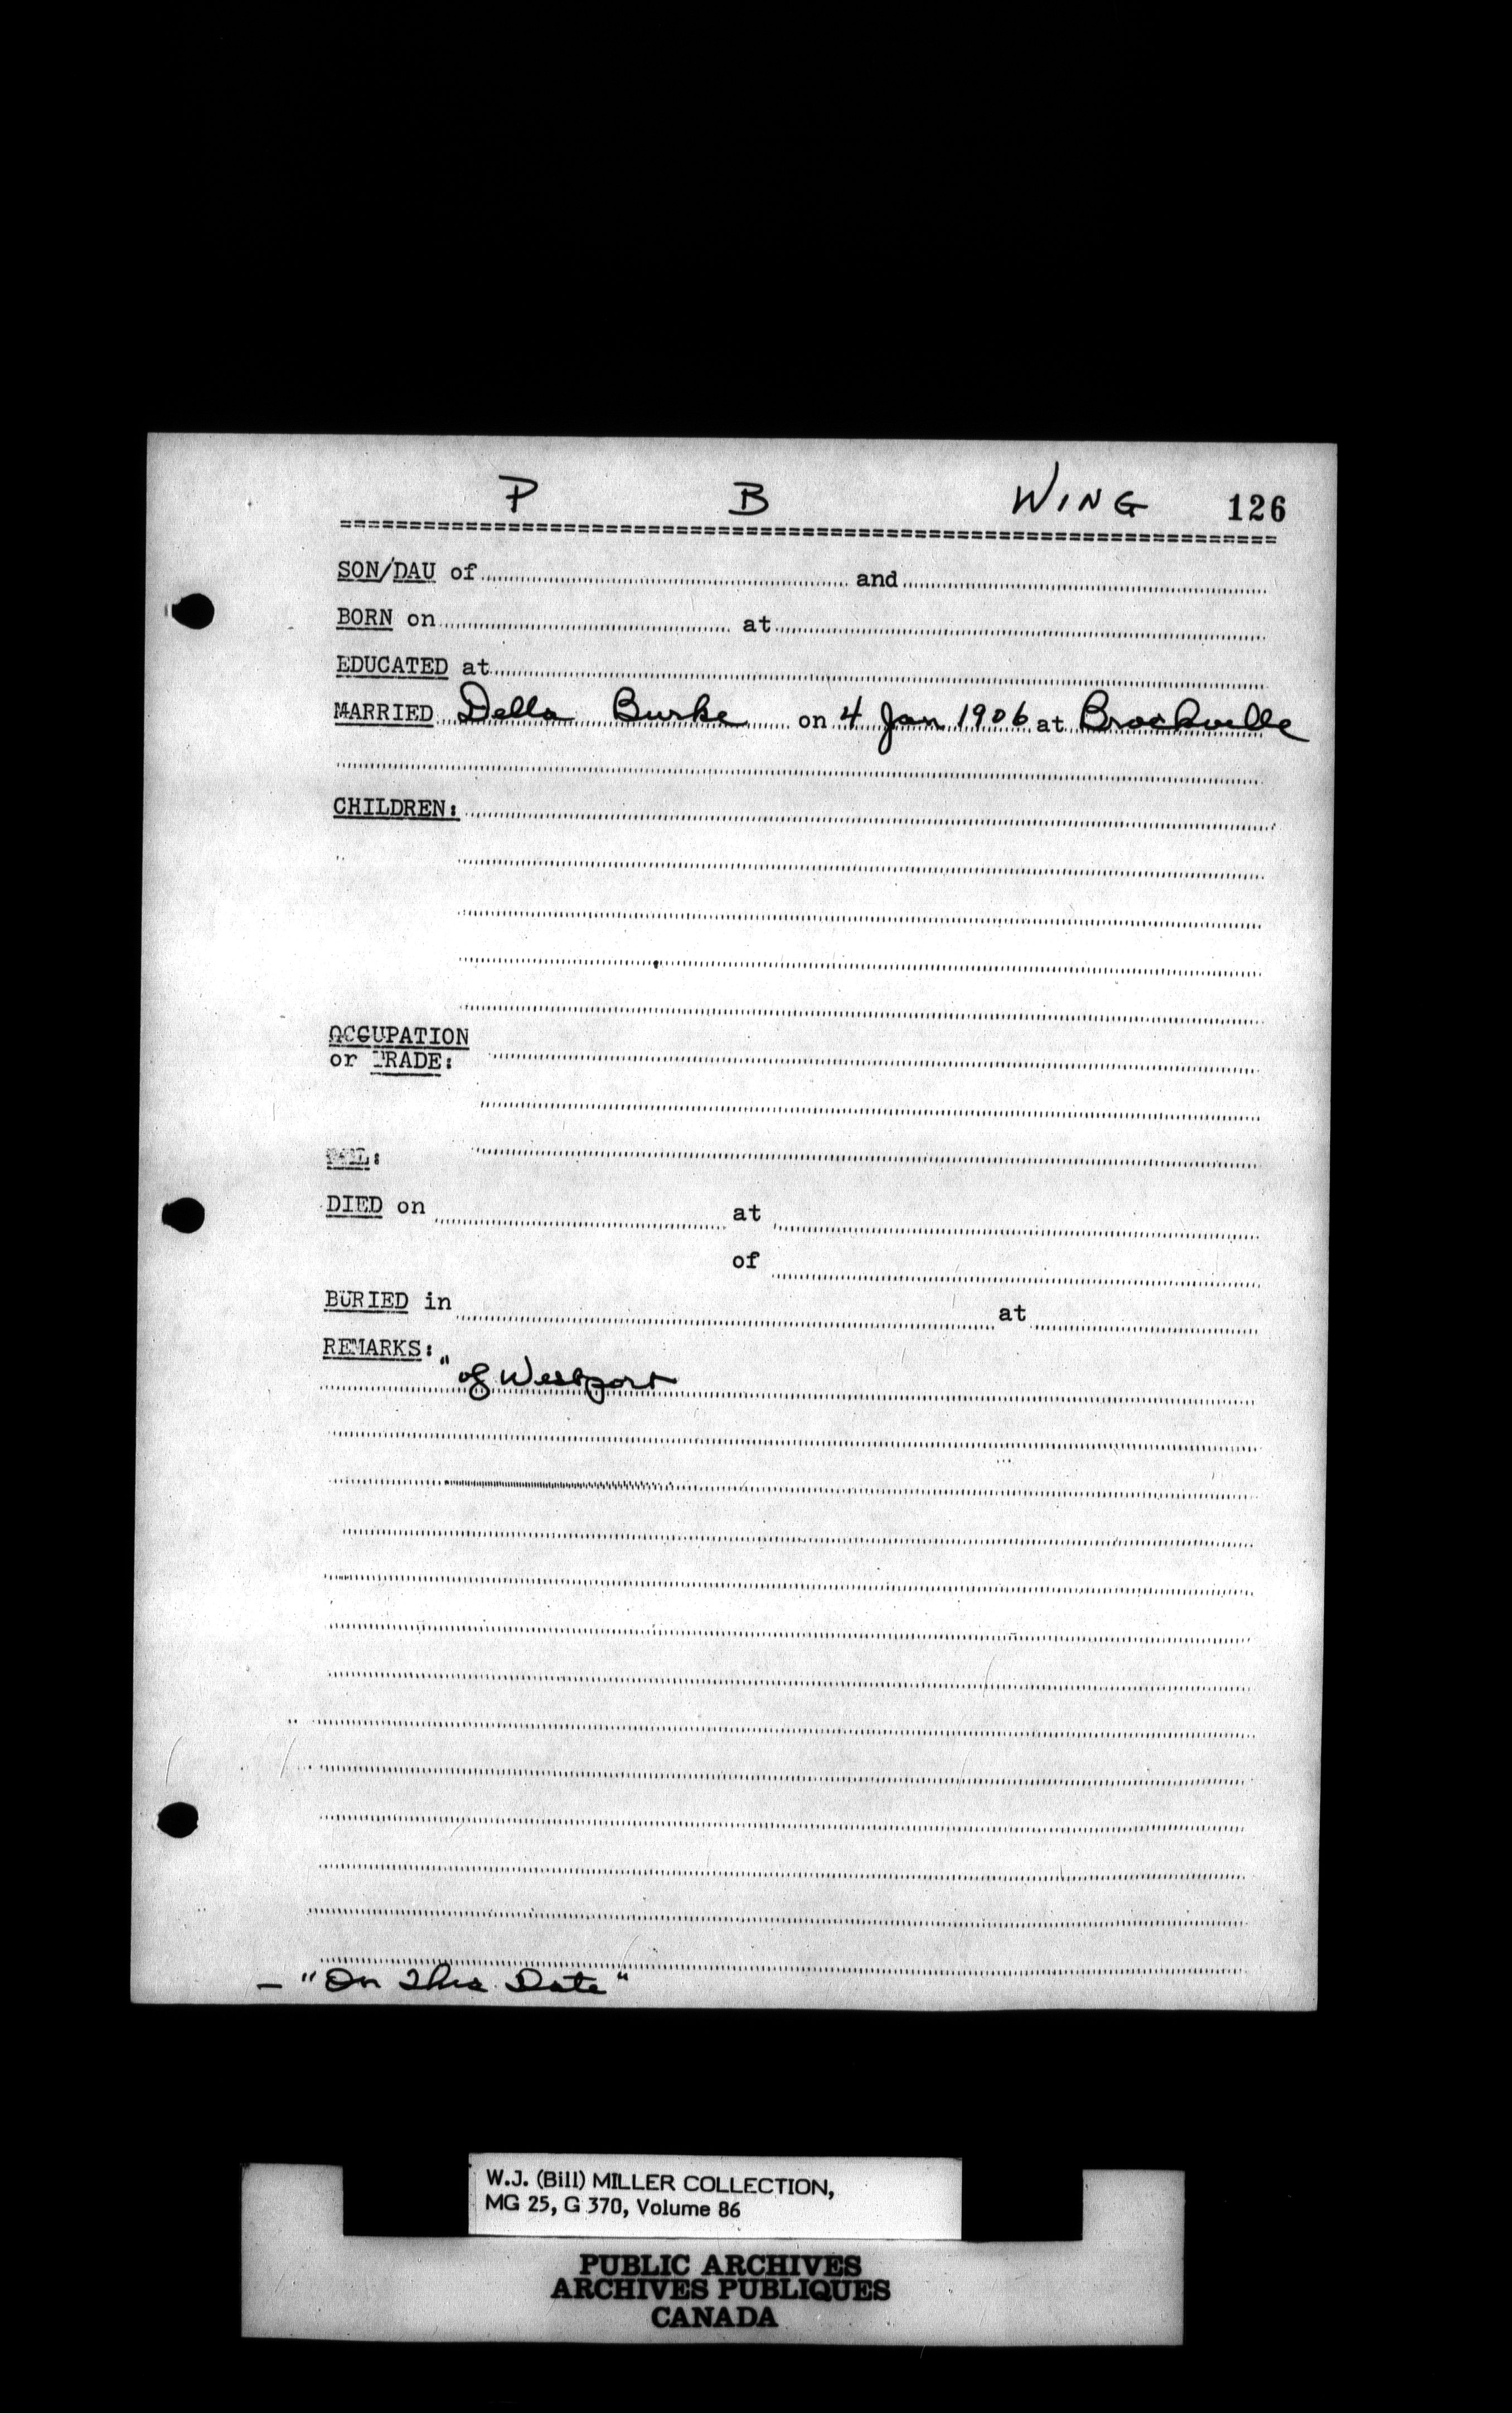 P B WING 126
SON/DAU of and
BORN on at
EDUCATED at
MARRIED Della Burke on 4 Jan 1906 at Brockville
CHILDREN:
OCCUPATION
or TRADE:
DIED on at
of
BURIED in at
REMARKS:
" of Westport
- "On This Date"
W.J. (Bill) MILLER COLLECTION,
MG 25, G 370, Volume 86
PUBLIC ARCHIVES
ARCHIVES PUBLIQUES
CANADA